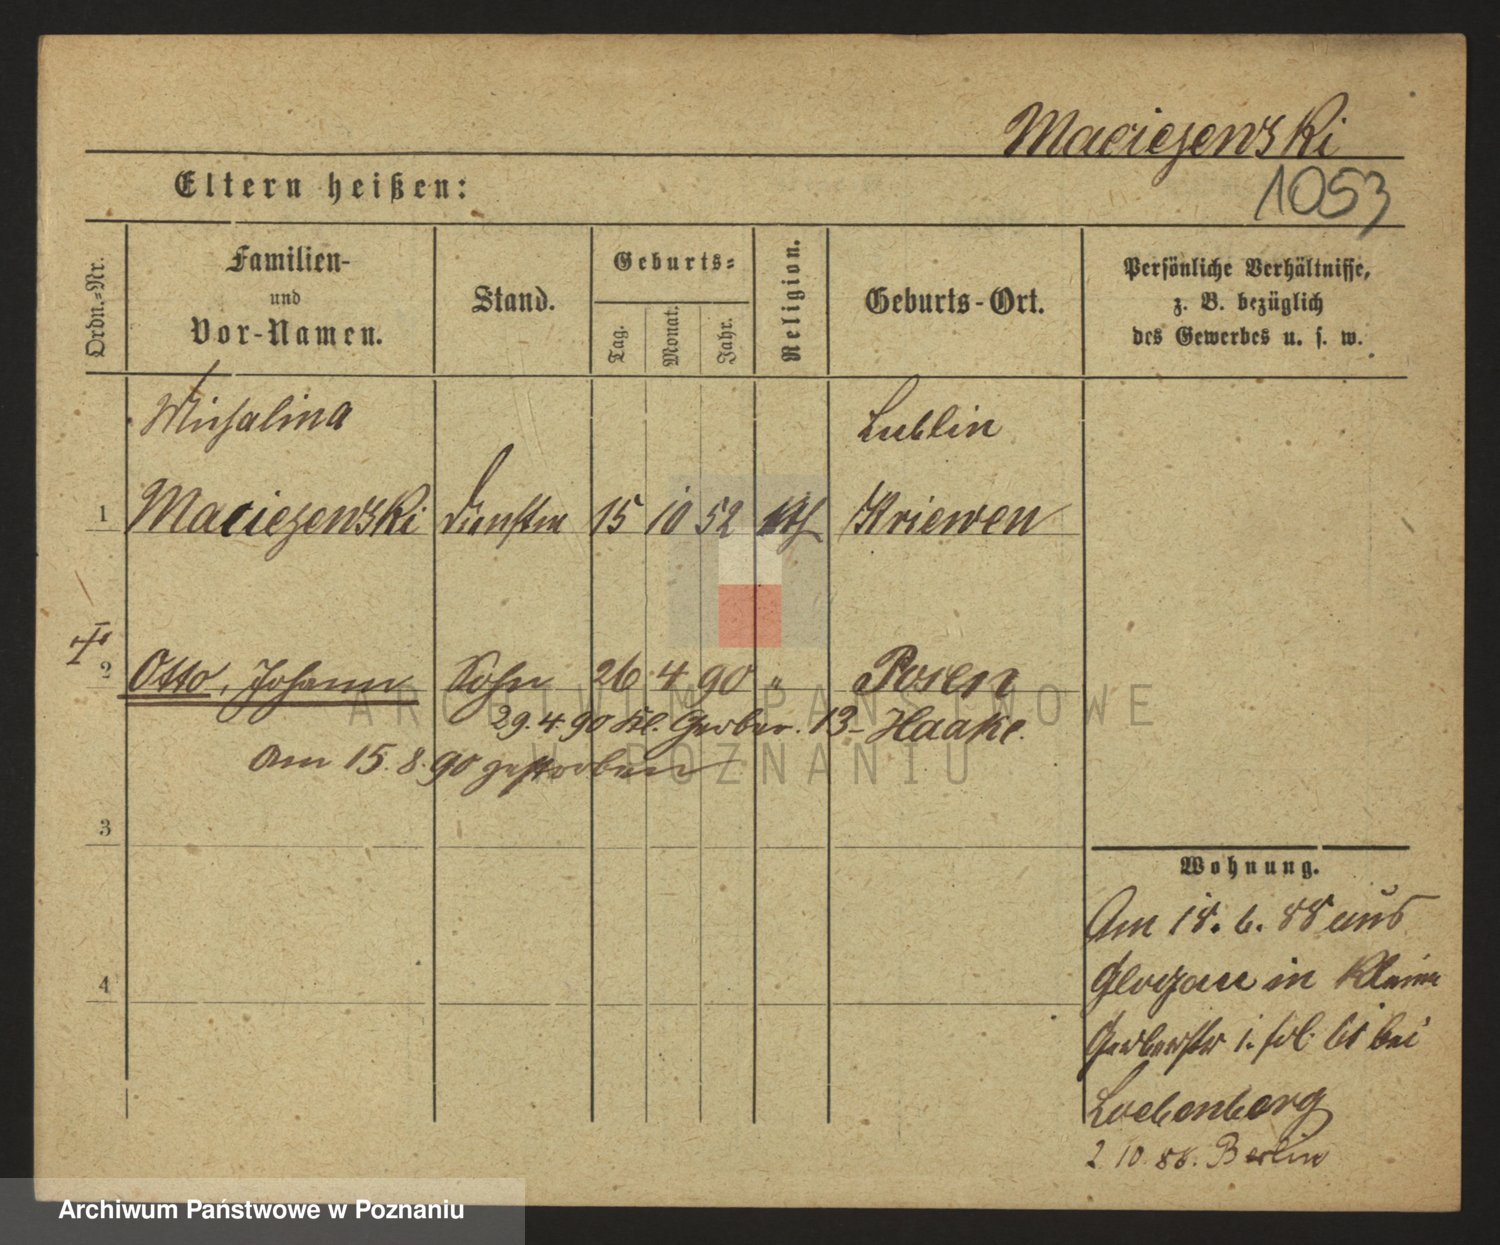 Maciejewski
Eltern heißen:
1053
Ordn.-Nr.
Familien-
und
Vor-Namen.
Stand.
Geburts-
Tag.
Monat.
Jahr.
Religion.
Geburts-Ort.
Persönliche Verhältnisse,
z. B. bezüglich
des Gewerbes u. s. w.
Michalina Lublin
1 Maciejewski 15 10 52 kth Kriewen
2 Otto, Johann Sohn 26 4 90 " Posen
29. 4. 90 Kl. Gerber. 13- Haake.
Am 15. 8. 90 gestorben
3
Wohnung.
Am 18. 6. 88 aus
4
Glogau in Kleine
Gerberstr bei
2 10. 88. Berlin
ARCHIWUM PAŃSTWOWE
W POZNANIU
Archiwum Państwowe w Poznaniu